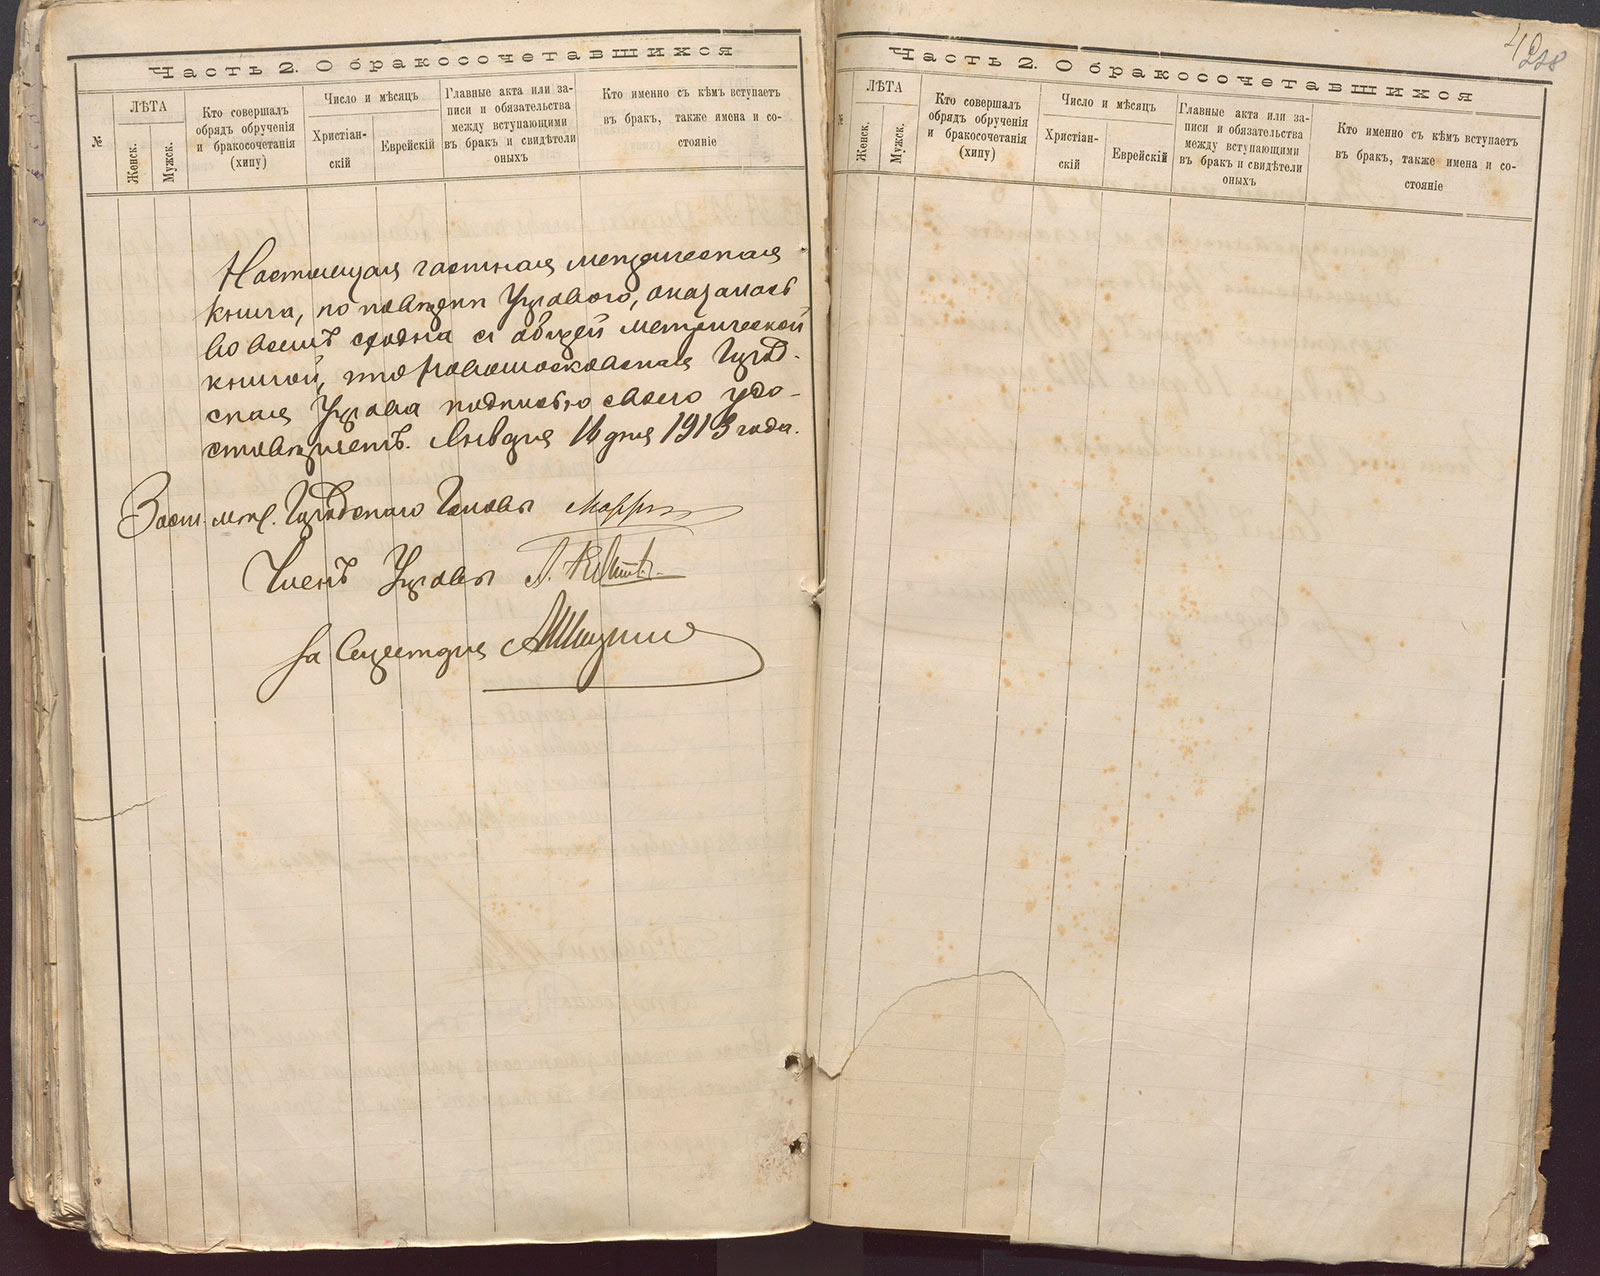 Часть 2. О бракосочетавшихся
№
ЛѢТА
Женск.
Мужск.
Кто совершалъ
обрядъ обрученія
и бракосочетанія
(хипу)
Число и мѣсяцъ
Христіан-
скій
Еврейскій
Главные акта или за-
писи и обязательства
между вступающими
въ бракъ и свидѣтели
оныхъ
Кто именно съ кѣмъ вступаетъ
въ бракъ, также имена и со-
стояніе
Настоящая частная метрическая
книга, по повѣрки Управою, оказалась
во всемъ сходна съ общей метрической
книгой, что Новомосковская Город-
ская Управа подписью своею удо-
стовѣряетъ. Января 16 дня 1913 года.
Заст. мѣс. Городского Головы
Членъ Управы
За Секретаря
Часть 2. О бракосочетавшихся
228
№
ЛѢТА
Женск.
Мужск.
Кто совершалъ
обрядъ обрученія
и бракосочетанія
(хипу)
Число и мѣсяцъ
Христіан-
скій
Еврейскій
Главные акта или за-
писи и обязательства
между вступающими
въ бракъ и свидѣтели
оныхъ
Кто именно съ кѣмъ вступаетъ
въ бракъ, также имена и со-
стояніе